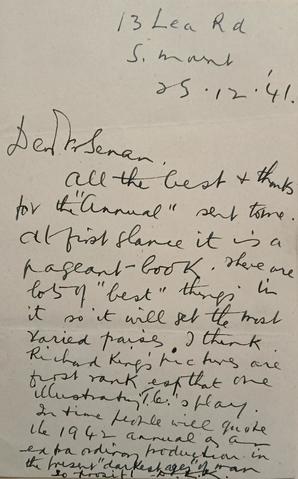 13 Lea Rd
S. mount
25.12.'41.
Dear Fr Senan,
all the best & thanks
for the "Annual" sent to me.
At first glance it is a
pageant-book. There are
lots of "best" things in
it so it will get the most
varied praises. I think
Richard King's pictures are
first rank esp. that one
illustrating play.
In time people will quote
the 1942 annual as an
extraordinary production in
the present "darkest ages" of man
So prosit!